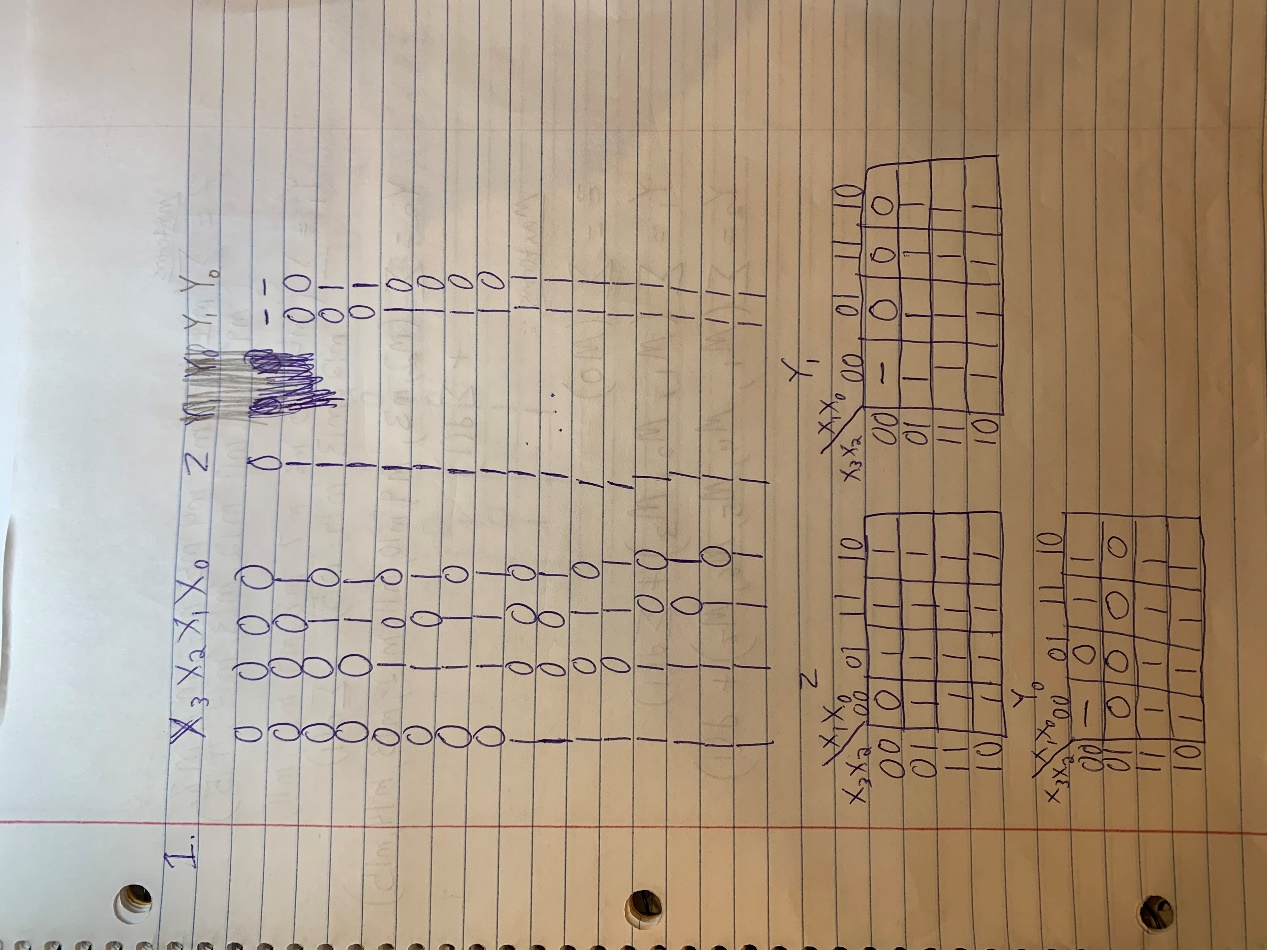 1. X3 X2 X1 X0 Z Y1 Y0
0 0 0 0 0 - -
0 0 0 1 1 0 0
0 0 1 0 1 0 1
0 0 1 1 1 0 1
0 1 0 0 1 1 0
0 1 0 1 1 1 0
0 1 1 0 1 1 0
0 1 1 1 1 1 0
1 0 0 0 1 1 1
1 0 0 1 1 1 1
1 0 1 0 1 1 1
1 0 1 1 1 1 1
1 1 0 0 1 1 1
1 1 0 1 1 1 1
1 1 1 0 1 1 1
1 1 1 1 1 1 1
Z
X1X0
X3X2 00 01 11 10
00 0 1 1 1
01 1 1 1 1
11 1 1 1 1
10 1 1 1 1
Y1
X1X0
X3X2 00 01 11 10
00 - 0 0 0
01 1 1 1 1
11 1 1 1 1
10 1 1 1 1
Y0
X1X0
X3X2 00 01 11 10
00 - 0 1 1
01 0 0 0 0
11 1 1 1 1
10 1 1 1 1